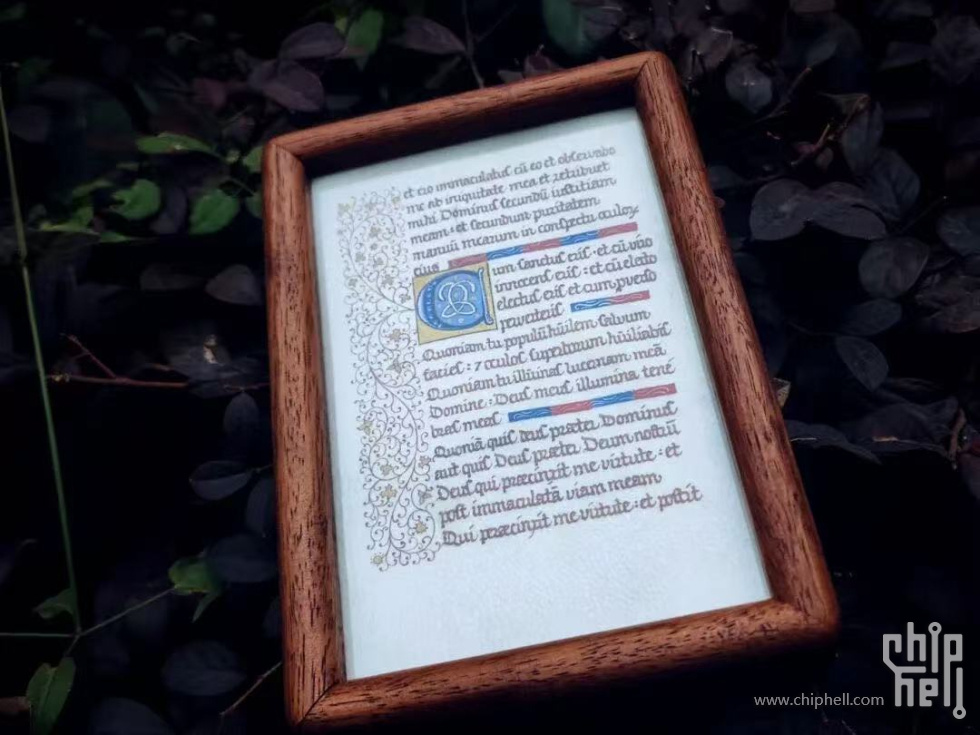 et ero immaculatus cū eo et observabo
me ab iniquitate mea et retribuet
mihi Dominus secundū iustitiam
meam : et secundum puritatem
manuū mearum in conspectu oculoꝝ
eius
Cum sanctus eris · et cū viro
innocens eris : et cū electo
electus eris et cum perverso
perverteris
Quoniam tu populū hūilem salvum
facies : ⁊ oculos superborum hūiliabis
Quoniam tu illūinas lucernam meā
Domine : Deus meus illumina tene
bras meas
Quoniā quis deus præter Dominus
aut quis Deus præter Deum nostrū
Deus qui præcinxit me virtute : et
post immaculatā viam meam
Qui præcinxit me virtute : et postit
www.chiphell.com
chip
hell